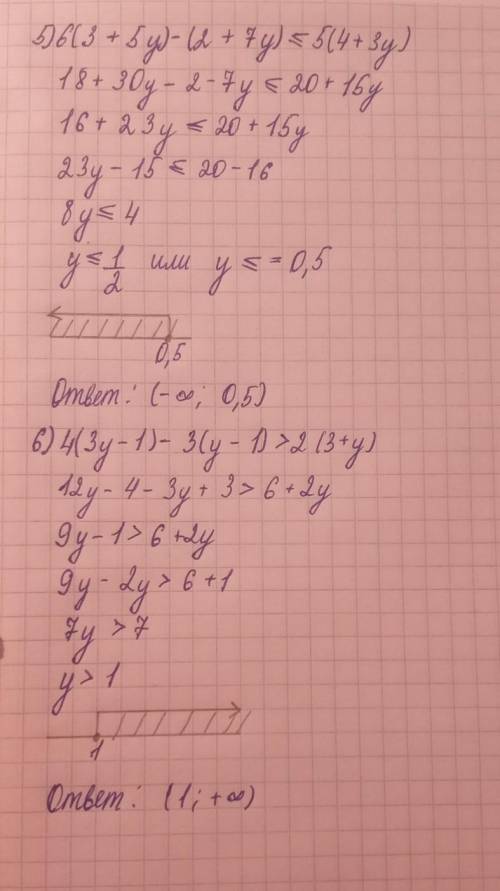 5) 6(3 + 5y) - (2 + 7y) ≤ 5(4+3y)
18 + 30y - 2 - 7y ≤ 20 + 15y
16 + 23y ≤ 20 + 15y
23y - 15 ≤ 20 - 16
8y ≤ 4
y ≤ 1/2 или y ≤ = 0,5
0,5
Ответ: (-∞; 0,5)
6) 4(3y - 1) - 3(y - 1) > 2(3+y)
12y - 4 - 3y + 3 > 6 + 2y
9y - 1 > 6 + 2y
9y - 2y > 6 + 1
7y > 7
y > 1
1
Ответ: (1; +∞)